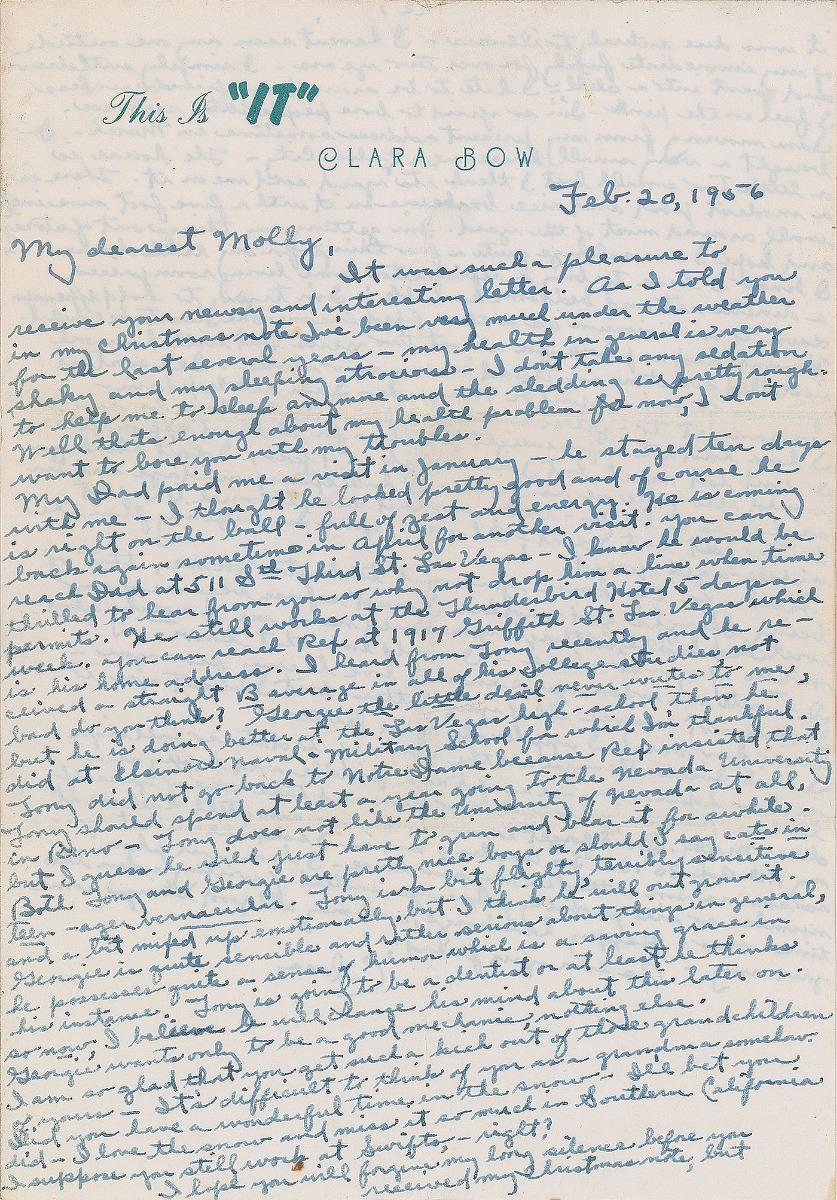 This Is "IT"
CLARA BOW
Feb. 20, 1956
My dearest Molly,
It was such a pleasure to
receive your newsy and interesting letter. As I told you
in my Christmas note I've been very much under the weather
for the last several years – my health in general is very
shaky and my sleeping atrocious – I don't take any sedation
to help me to sleep anymore and the sledding is pretty rough.
Well thats enough about my health problem for now, I don't
want to bore you with my troubles.
My Dad paid me a visit in January – he stayed ten days
with me – I thought he looked pretty good and of course he
is right on the ball – full of zest and energy. He is coming
back again sometime in April for another visit. You can
reach Dad at 511 Sth Third St. Las Vegas – I know he would be
thrilled to hear from you so why not drop him a line when time
permits. He still works at the Thunderbird Hotel 5 days a
week. You can reach Rex at 1917 Griffith St. Las Vegas which
is his home address. I heard from Tony recently and he re-
ceived a straight B average in all of his college studies not
bad do you think? Georgie the little devil never writes to me,
but he is doing better at the Las Vegas high-school than he
did at Elsinore Naval & Military School for which I'm thankful.
Tony did not go back to Notre Dame because Rex insisted that
Tony should spend at least a year going to the Nevada University
in Reno – Tony does not like the University of Nevada at all,
but I guess he will just have to grin and bear it for awhile.
Both Tony and Georgie are pretty nice boys or should I say cats in
teen-ager vernacular. Tony is a bit flighty, terribly sensitive
and a bit mixed up emotionally, but I think he will out grow it.
Georgie is quite sensible and rather serious about things in general,
he possesses quite a sense of humor which is a saving grace in
his instance. Tony is going to be a dentist or at least he thinks
so now, I believe he will change his mind about this later on.
Georgie wants only to be a good mechanic, nothing else.
I am so glad that you get such a kick out of those grandchildren
of yours – It's difficult to think of you as a grandma somehow.
Did you have a wonderful time in the snow – I'll bet you
did – I love the snow and miss it so much in Southern California
I suppose you still work at Swifts, – right?
I hope you will forgive my long silence before you
received my Christmas note, but